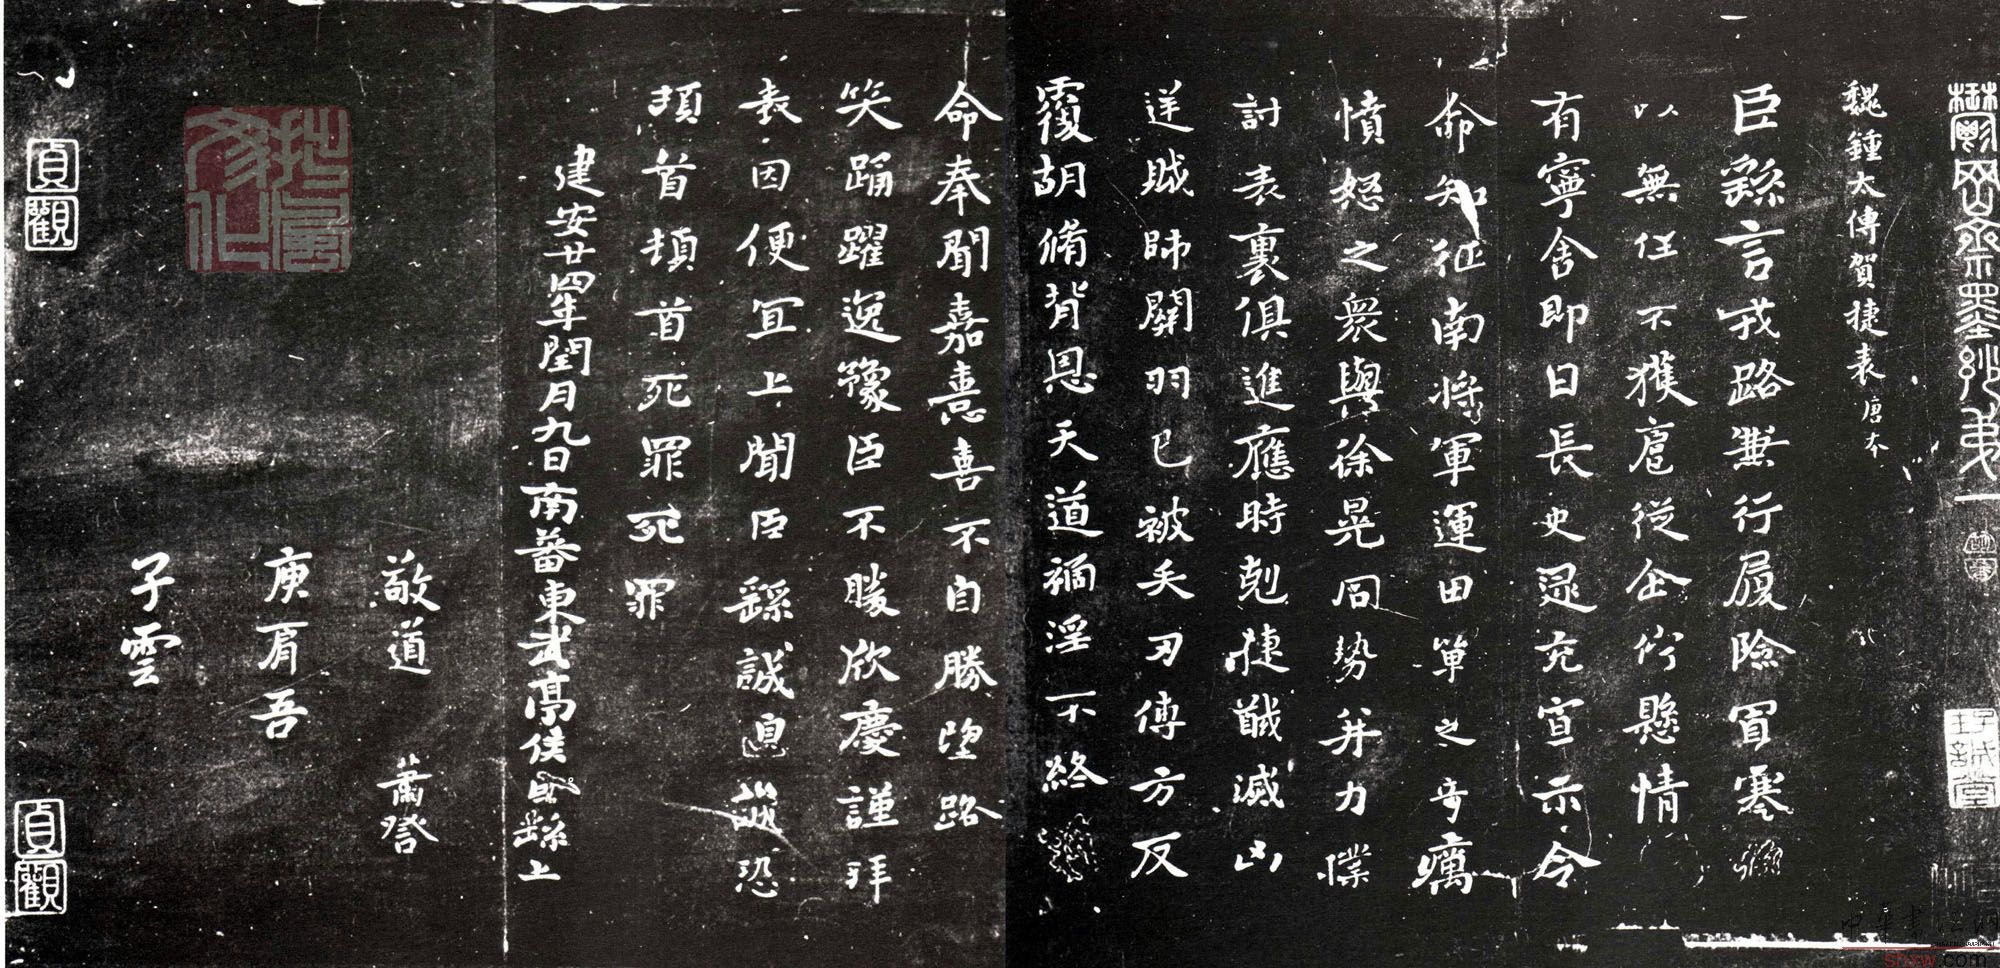 鬱岡齋墨妙第一
魏鍾太傅賀捷表 唐本
臣繇言戎路兼行履險冒寒
以無任不獲扈從企佇懸情
有寧舍即日長史逯充宣示令
命知征南將軍運田單之奇厲
憤怒之衆與徐晃同勢并力撲
討表裏俱進應時剋捷馘滅凶
逆賊帥關羽已被矢刃傅方反
覆胡脩背恩天道禍淫不終
命奉聞嘉憙喜不自勝望路
笑踊躍逸豫臣不勝欣慶謹拜
表因便宜上聞臣繇誠惶誠恐
頓首頓首死罪死罪
建安廿四年閏月九日南蕃東武亭侯臣繇上
敬道 蕭
庾肩吾
子雲
貞觀
貞觀
shxw.com